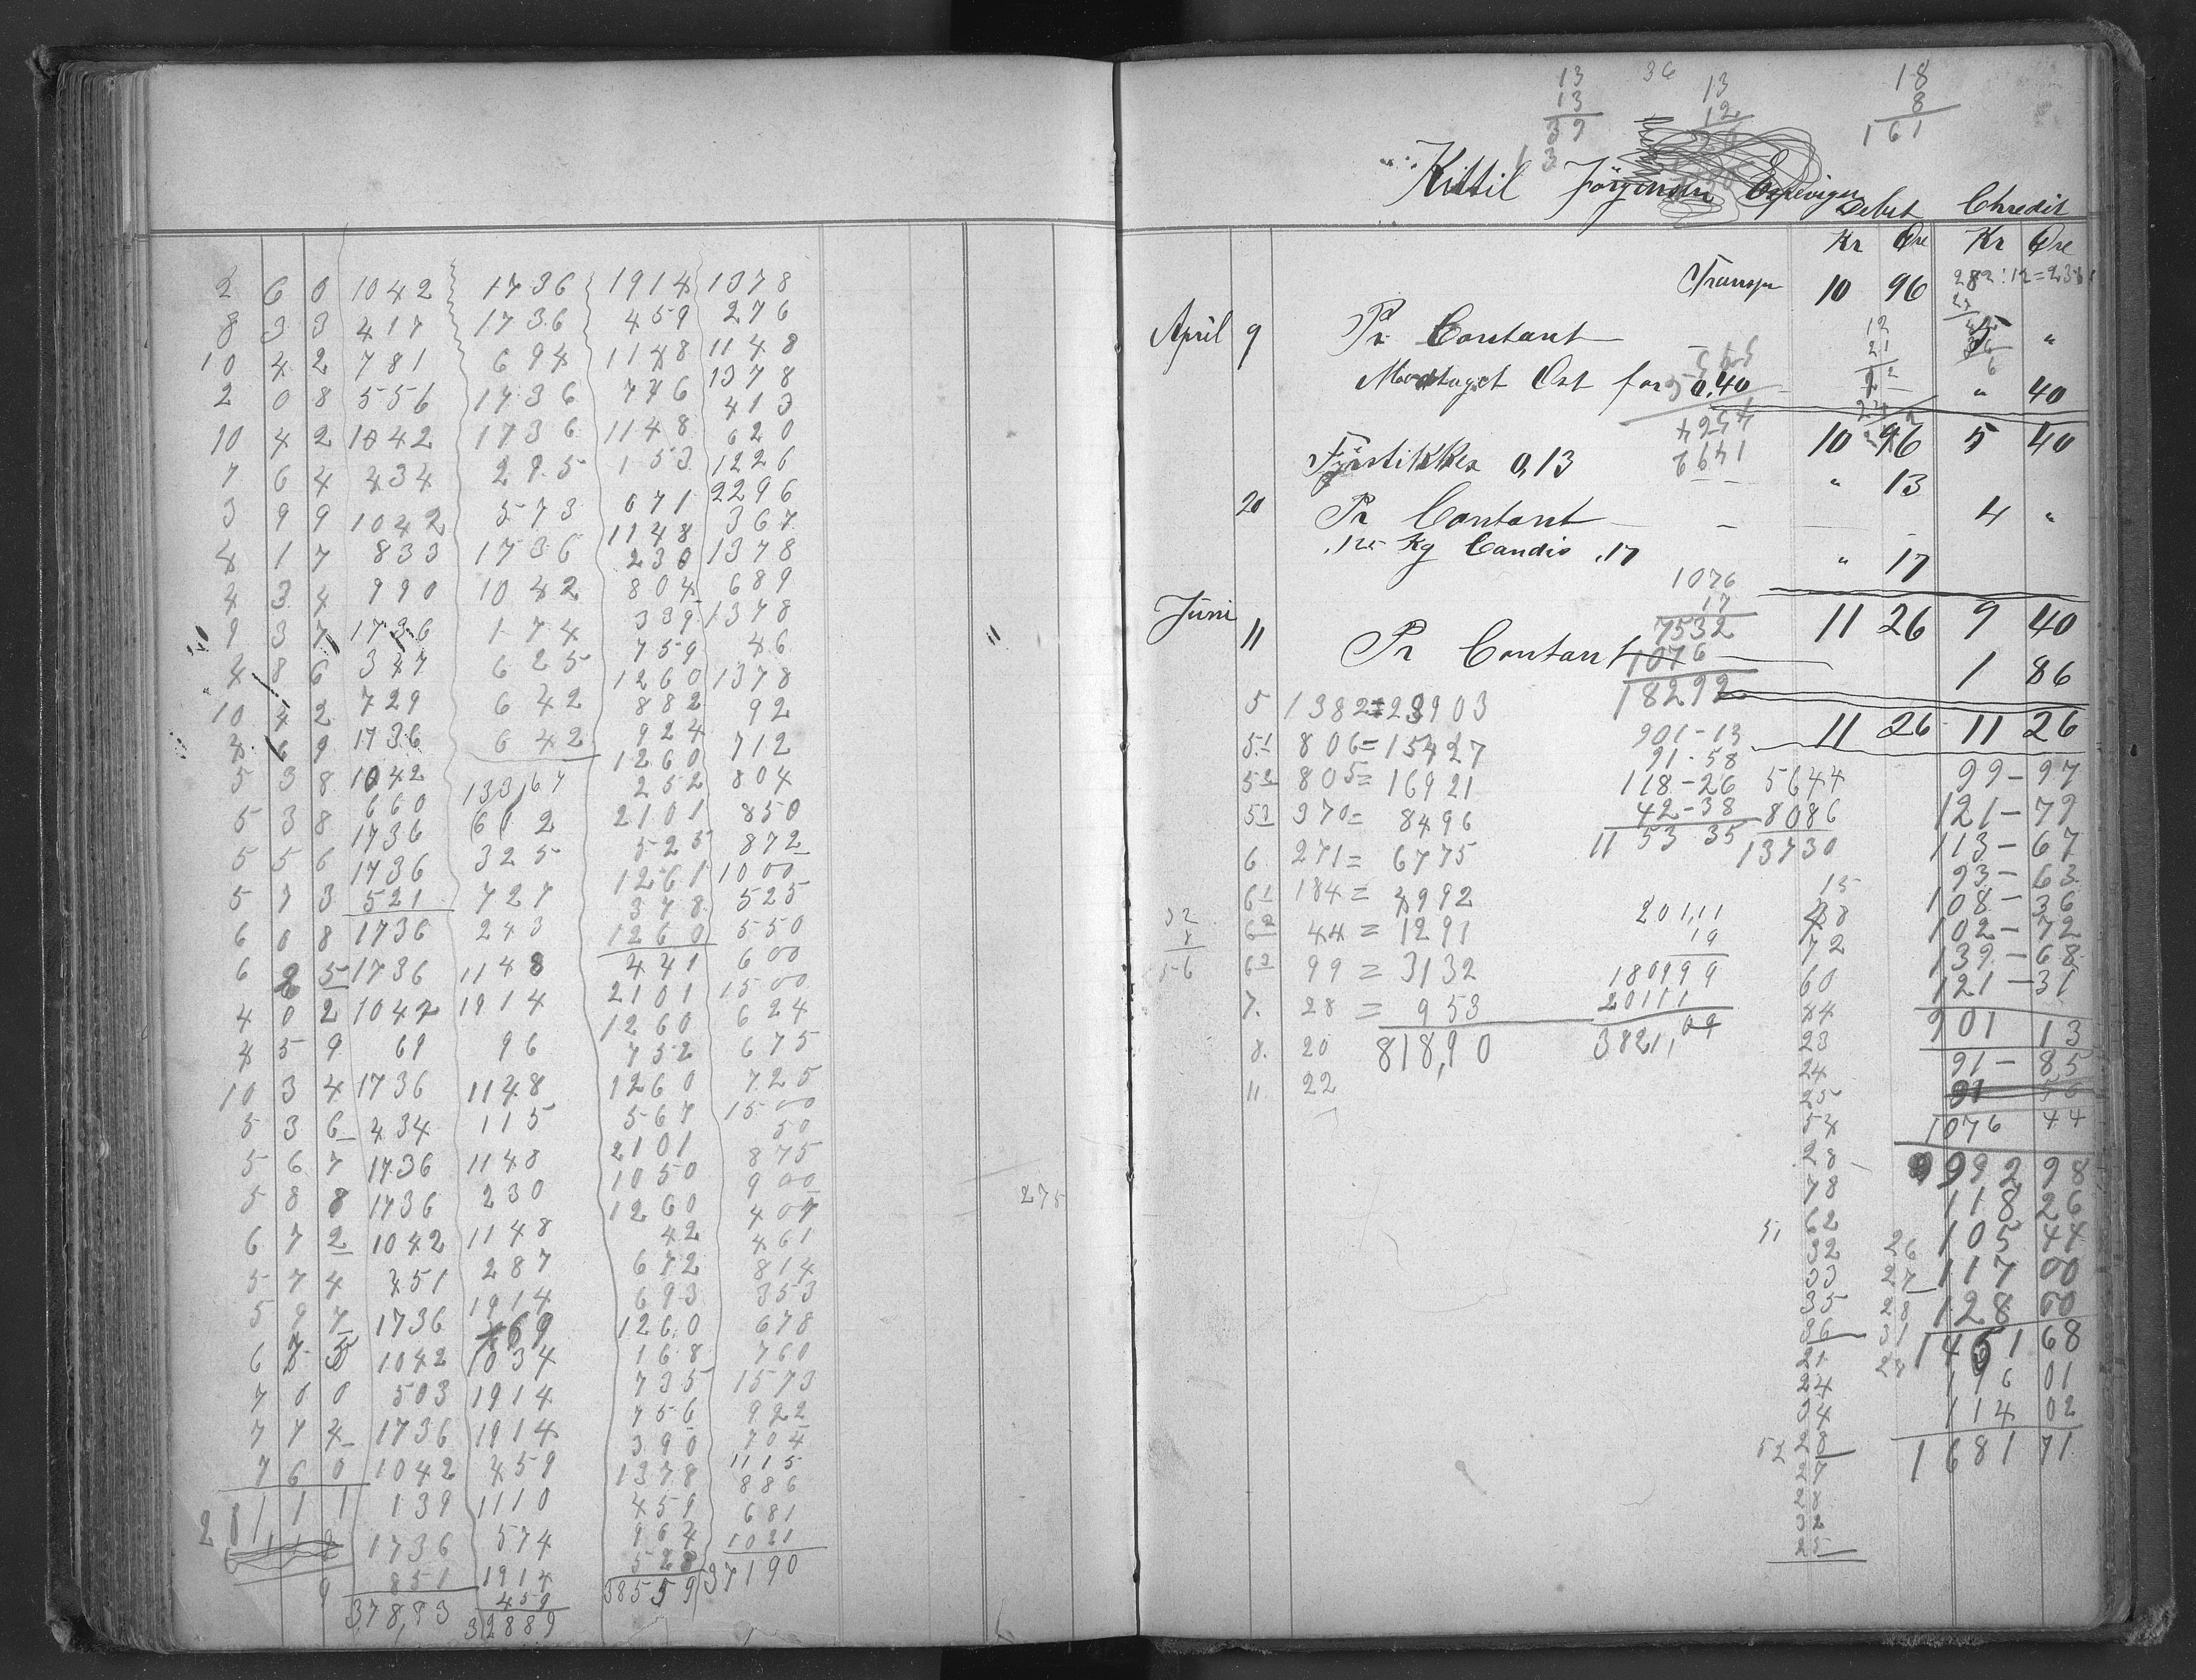 2 6 0 1042 1736 1914 1378
8 3 3 417 1736 459 276
10 4 2 781 694 1148 1148
2 0 8 556 1736 776 1378
10 4 2 1042 1736 1148 413
7 6 4 434 295 153 620
3 9 9 1042 573 671 1226
4 1 7 833 1736 1148 2296
4 3 4 990 1042 230 367
9 3 7 1736 174 804 1378
4 8 6 347 625 339 689
10 4 2 729 642 759 1378
4 6 9 1736 642 1260 46
5 3 8 1042 13367 882 1378
5 3 8 660 612 924 92
5 5 6 1736 325 1260 712
5 7 3 1736 727 252 804
6 0 8 521 243 2101 850
6 2 5 1736 1148 525 872
4 0 2 1736 1914 1261 1000
4 5 9 1042 96 378 525
10 3 4 69 1148 1260 550
5 3 6 1736 115 441 600
5 6 7 434 1148 2101 1500
5 8 8 1736 230 1260 624
6 7 2 1736 1148 752 675
5 7 4 1042 287 1260 725
5 9 7 451 1914 567 1500
6 7 5 1736 169 2101 50
7 0 0 1042 1034 1050 875
7 7 4 503 1914 1260 900
7 6 0 1736 1914 42 407
2 8 1 1 1 1042 459 672 461
139 1110 693 814
1736 574 1260 353
851 1914 168 678
37893 459 735 760
32889 756 1573
390 922
1378 704
459 1115
964 886
528 681
38559 1021
37190
275
13 36 13 18
13 12 8
39 161
Kittil Jörgensen Espevigen
Debet Chredit
Kr Øre Kr Øre
Transpr 10 96 282:12=235
April 9 Pr Contant 5 "
Modtaget Ost for 0,40 " 40
10 96 5 40
4574
1492
Fyrstikker 0,13 " 13
20 Pr Contant 4 "
,125 Kg Candis ,17 " 17
1076
17
7532
1076
18292
11 26 9 40
Juni 11 Pr Contant 1 86
11 26 11 26
5 1382=23903
5 1 806=15427
5 2 805=16921
5 3 370= 8496
6 271= 6775
6 1 184= 4992
6 2 44= 1291
6 3 99= 3132
7. 28= 953
8. 20 818,90
11 22
32
8
56
901-13
91-58
118-26
42-38
1153 35
5644
8086
13730
201,11
19
180999
20111
3821,09
15
48
72
60
44
23
24
25
54
28
78
62
51 32
33
35
36
21
24
34
52 28
27
28
32
25
26
27
28
31
24
99-97
121-79
113-67
93-63
108-36
102-72
139-68
121-31
901 13
91-85
1076 44
992 98
118 26
105 44
117 00
128 60
1451 68
116 01
114 02
1681 71